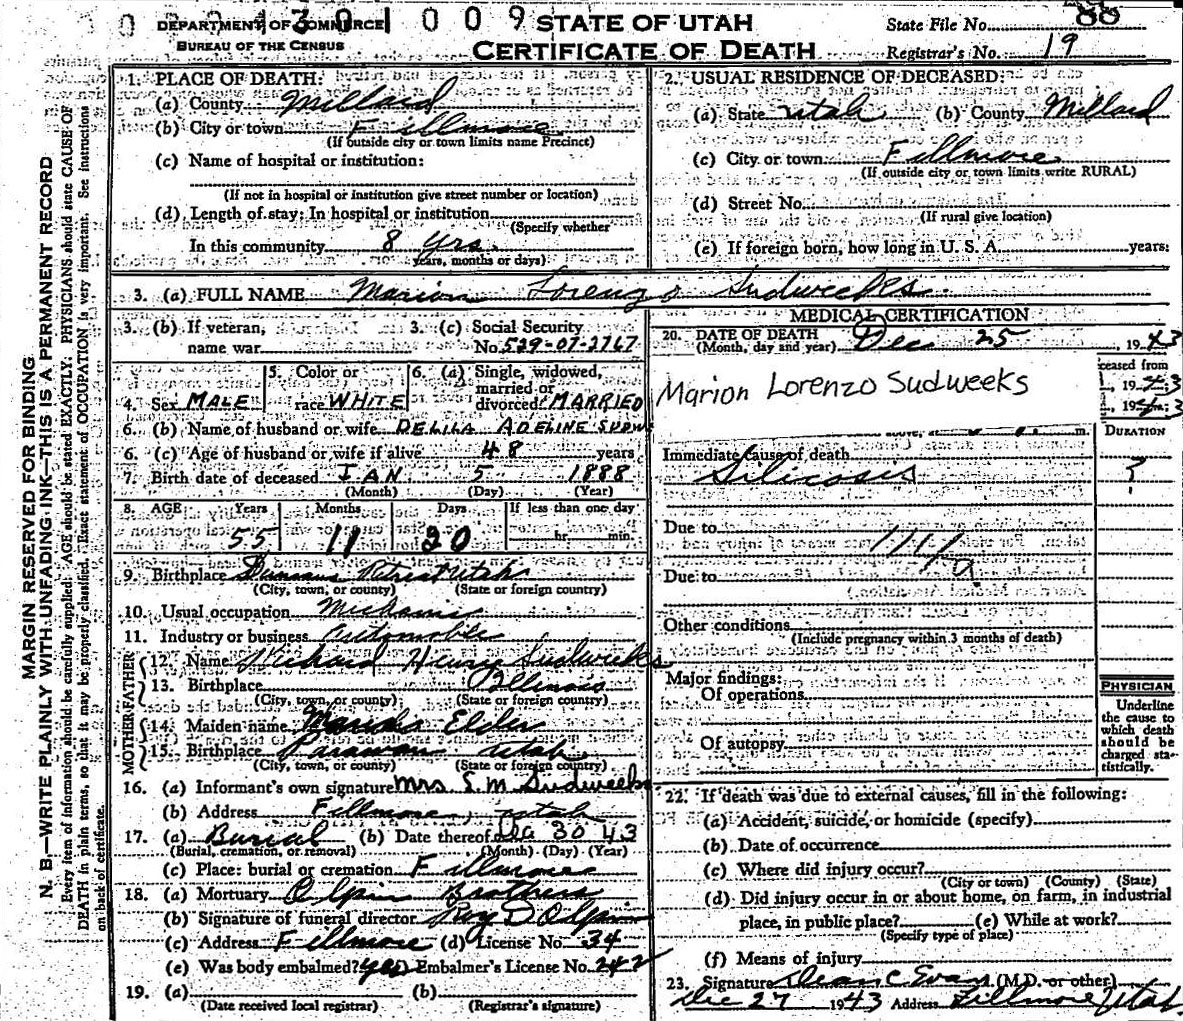 DEPARTMENT OF COMMERCE
BUREAU OF THE CENSUS
STATE OF UTAH
CERTIFICATE OF DEATH
State File No. 88
Registrar's No. 19
MARGIN RESERVED FOR BINDING
N. B.—WRITE PLAINLY WITH UNFADING INK—THIS IS A PERMANENT RECORD
Every item of information should be carefully supplied. AGE should be stated EXACTLY. PHYSICIANS should state CAUSE OF
DEATH in plain terms, so that it may be properly classified. Exact statement of OCCUPATION is very important. See instructions
on back of certificate.
1. PLACE OF DEATH:
(a) County Millard
(b) City or town Fillmore
(If outside city or town limits name Precinct)
(c) Name of hospital or institution:
(If not in hospital or institution give street number or location)
(d) Length of stay: In hospital or institution
(Specify whether
In this community 8 yrs.
years, months or days)
2. USUAL RESIDENCE OF DECEASED:
(a) State Utah (b) County Millard
(c) City or town Fillmore
(If outside city or town limits write RURAL)
(d) Street No.
(If rural give location)
(e) If foreign born, how long in U. S. A. years.
3. (a) FULL NAME Marion Lorenzo Sudweeks
3. (b) If veteran, name war
3. (c) Social Security No. 529-07-2767
4. Sex MALE
5. Color or race WHITE
6. (a) Single, widowed, married or divorced MARRIED
6. (b) Name of husband or wife DELILA ADELINE SUDW
6. (c) Age of husband or wife if alive 48 years
7. Birth date of deceased JAN 5 1888
(Month) (Day) (Year)
8. AGE Years Months Days If less than one day
55 11 20 hr. min.
9. Birthplace Utah
(City, town, or county) (State or foreign country)
10. Usual occupation Mechanic
11. Industry or business Automobile
FATHER
12. Name Richard Henry Sudweeks
13. Birthplace Illinois
(City, town, or county) (State or foreign country)
MOTHER
14. Maiden name Elder
15. Birthplace Parowan Utah
(City, town, or county) (State or foreign country)
16. (a) Informant's own signature Mrs S. M Sudweeks
(b) Address Fillmore, Utah
17. (a) Burial (b) Date thereof Dec 30 43
(Burial, cremation, or removal) (Month) (Day) (Year)
(c) Place: burial or cremation Fillmore
18. (a) Mortuary Olpin Brothers
(b) Signature of funeral director Roy D Olpin
(c) Address Fillmore (d) License No. 34
(e) Was body embalmed? yes Embalmer's License No. 242
19. (a) (b)
(Date received local registrar) (Registrar's signature)
MEDICAL CERTIFICATION
20. DATE OF DEATH
(Month, day and year) Dec 25, 1943
ceased from
Marion Lorenzo Sudweeks
DURATION
Immediate cause of death
Silicosis ?
Due to
111/a
Due to
Other conditions
(Include pregnancy within 3 months of death)
Major findings:
Of operations
Of autopsy
PHYSICIAN
Underline
the cause to
which death
should be
charged sta-
tistically.
22. If death was due to external causes, fill in the following:
(a) Accident, suicide, or homicide (specify)
(b) Date of occurrence
(c) Where did injury occur?
(City or town) (County) (State)
(d) Did injury occur in or about home, on farm, in industrial
place, in public place? (e) While at work?
(Specify type of place)
(f) Means of injury
23. Signature Dean C Evans (M.D. or other)
Dec 27 1943 Address Fillmore Utah